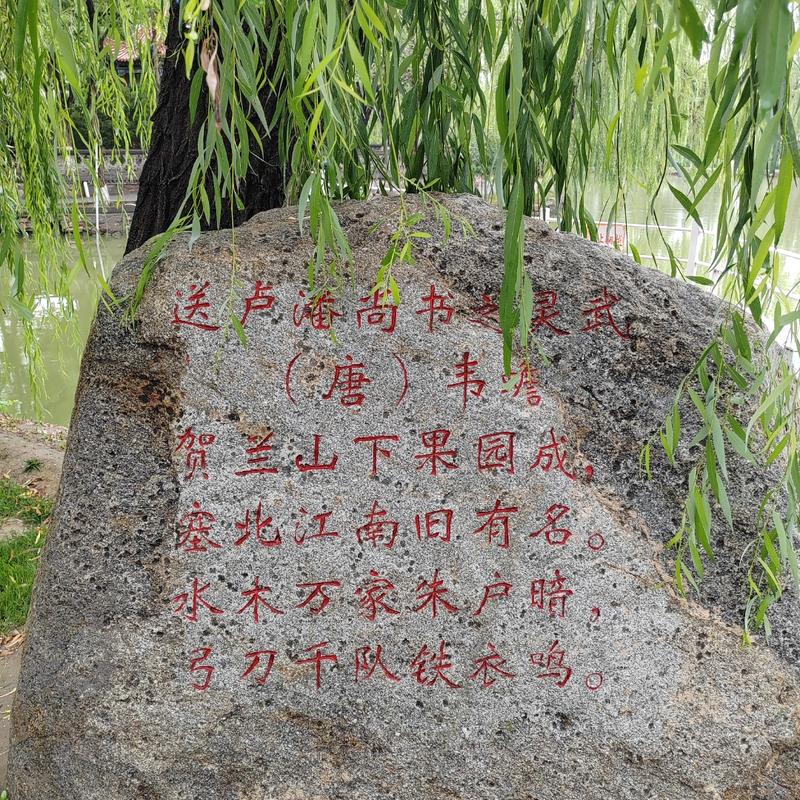 送卢潘尚书之灵武
（唐）韦蟾
贺兰山下果园成，
塞北江南旧有名。
水木万家朱户暗，
弓刀千队铁衣鸣。